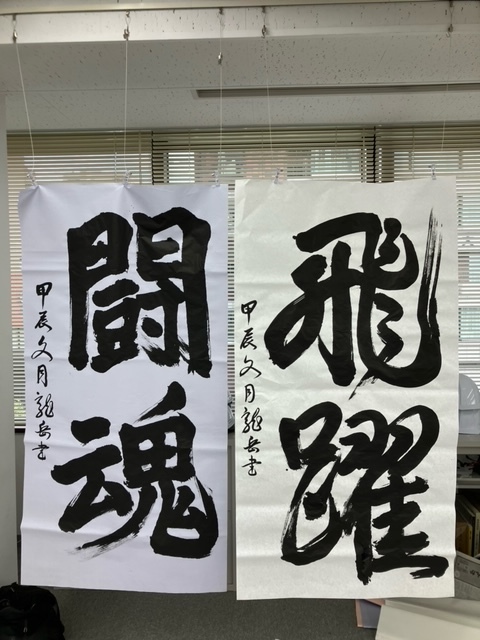 飛躍
甲辰文月龍岳書
闘魂
甲辰文月龍岳書